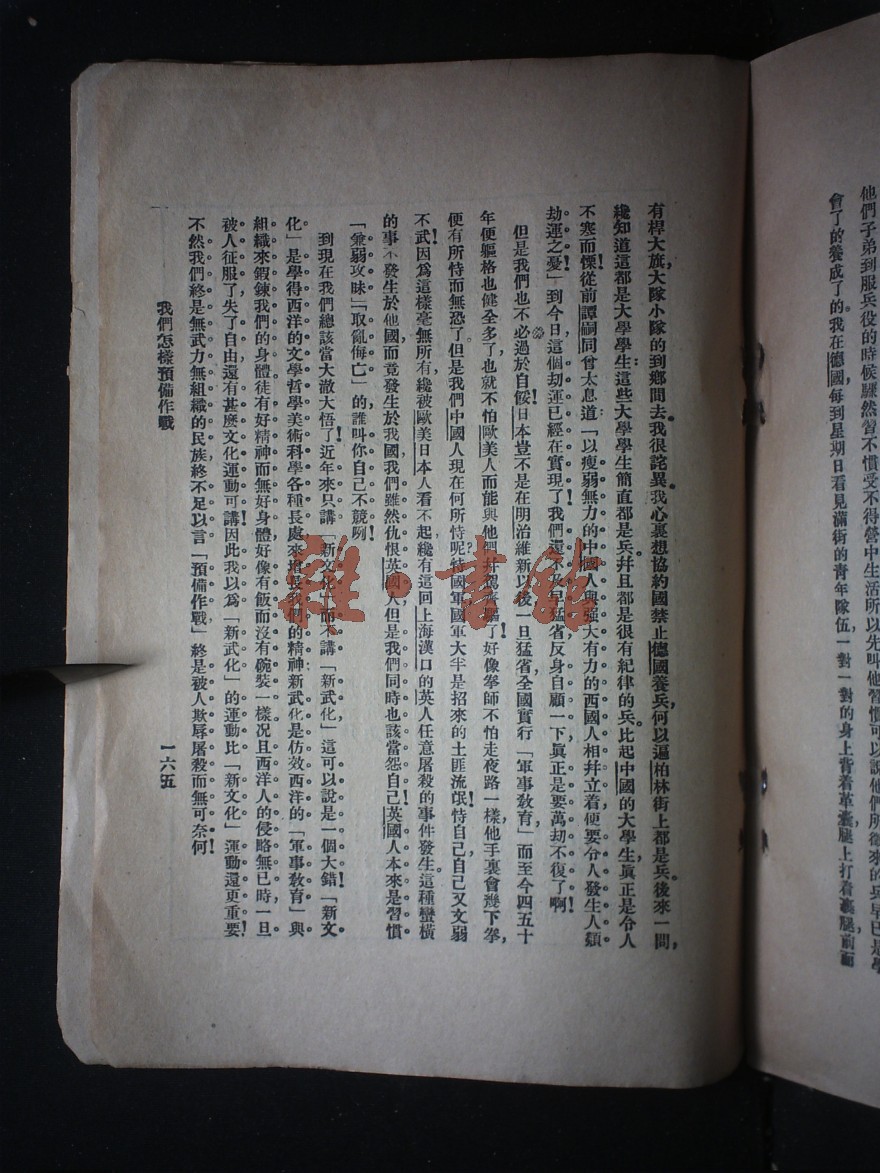 他們子弟到服兵役的時候驟然習不慣受不得營中生活所以先叫他習慣可以說他們所徵來的兵早已是學
會了的養成了的我在德國,每到星期日看見滿街的青年隊伍一對一對的身上背着革囊,腿上打着裹腿,前面
有桿大旗,大隊小隊的到鄉間去。我很詫異。我心裏想協約國禁止德國養兵,何以逼柏林街上都是兵。後來一問,
纔知道這都是大學學生;這些大學學生簡直都是兵,幷且都是很有紀律的兵。比起中國的大學生,眞正是令人
不寒而慄!從前譚嗣同曾太息道:「以瘦弱無力的中國人與强大有力的西國人相幷立着,便要令人發生人類
劫運之憂!」到今日,這個劫運已經在實現了!我們還不及早猛省,反身自顧一下,眞正是要萬劫不復了啊!
但是我們也不必過於自餒!日本豈不是在明治維新以後,一旦猛省,全國實行「軍事敎育」而至今四五十
年便軀格也健全多了,也就不怕歐美人而能與他們幷駕齊驅了!好像拳師不怕走夜路一樣,他手裏會幾下拳,
便有所恃而無恐了。但是我們中國人現在何所恃呢?恃國軍,國軍大半是招來的土匪流氓!恃自己,自己又文弱
不武!因爲這樣毫無所有,纔被歐美日本人看不起,纔有這回上海漢口的英人任意屠殺的事件發生。這種蠻橫
的事不發生於他國,而竟發生於我國,我們雖然仇恨英國人,但是我們同時也該當怨自己。英國人本來是習慣
「兼弱攻昧」「取亂侮亡」的,誰叫你自己不競咧!
到現在我們總該當大澈大悟了!近年來只講「新文化」而不講「新武化」這可以說是一個大錯!「新文
化」是學得西洋的文學哲學美術科學各種長處來增長我們的精神,新武化是仿效西洋的「軍事敎育」與
組織來鍛鍊我們的身體。徒有好精神而無好身體,好像有飯而沒有碗裝一樣。况且西洋人的侵略無已時,一旦
被人征服了,失了自由,還有甚麽文化運動可講?因此我以爲「新武化」的運動比「新文化」運動還更重要!
不然我們終是無武力無組織的民族,終不足以言「預備作戰」終是被人欺辱屠殺而無可奈何!
我們怎樣預備作戰
一六五
雜·書館